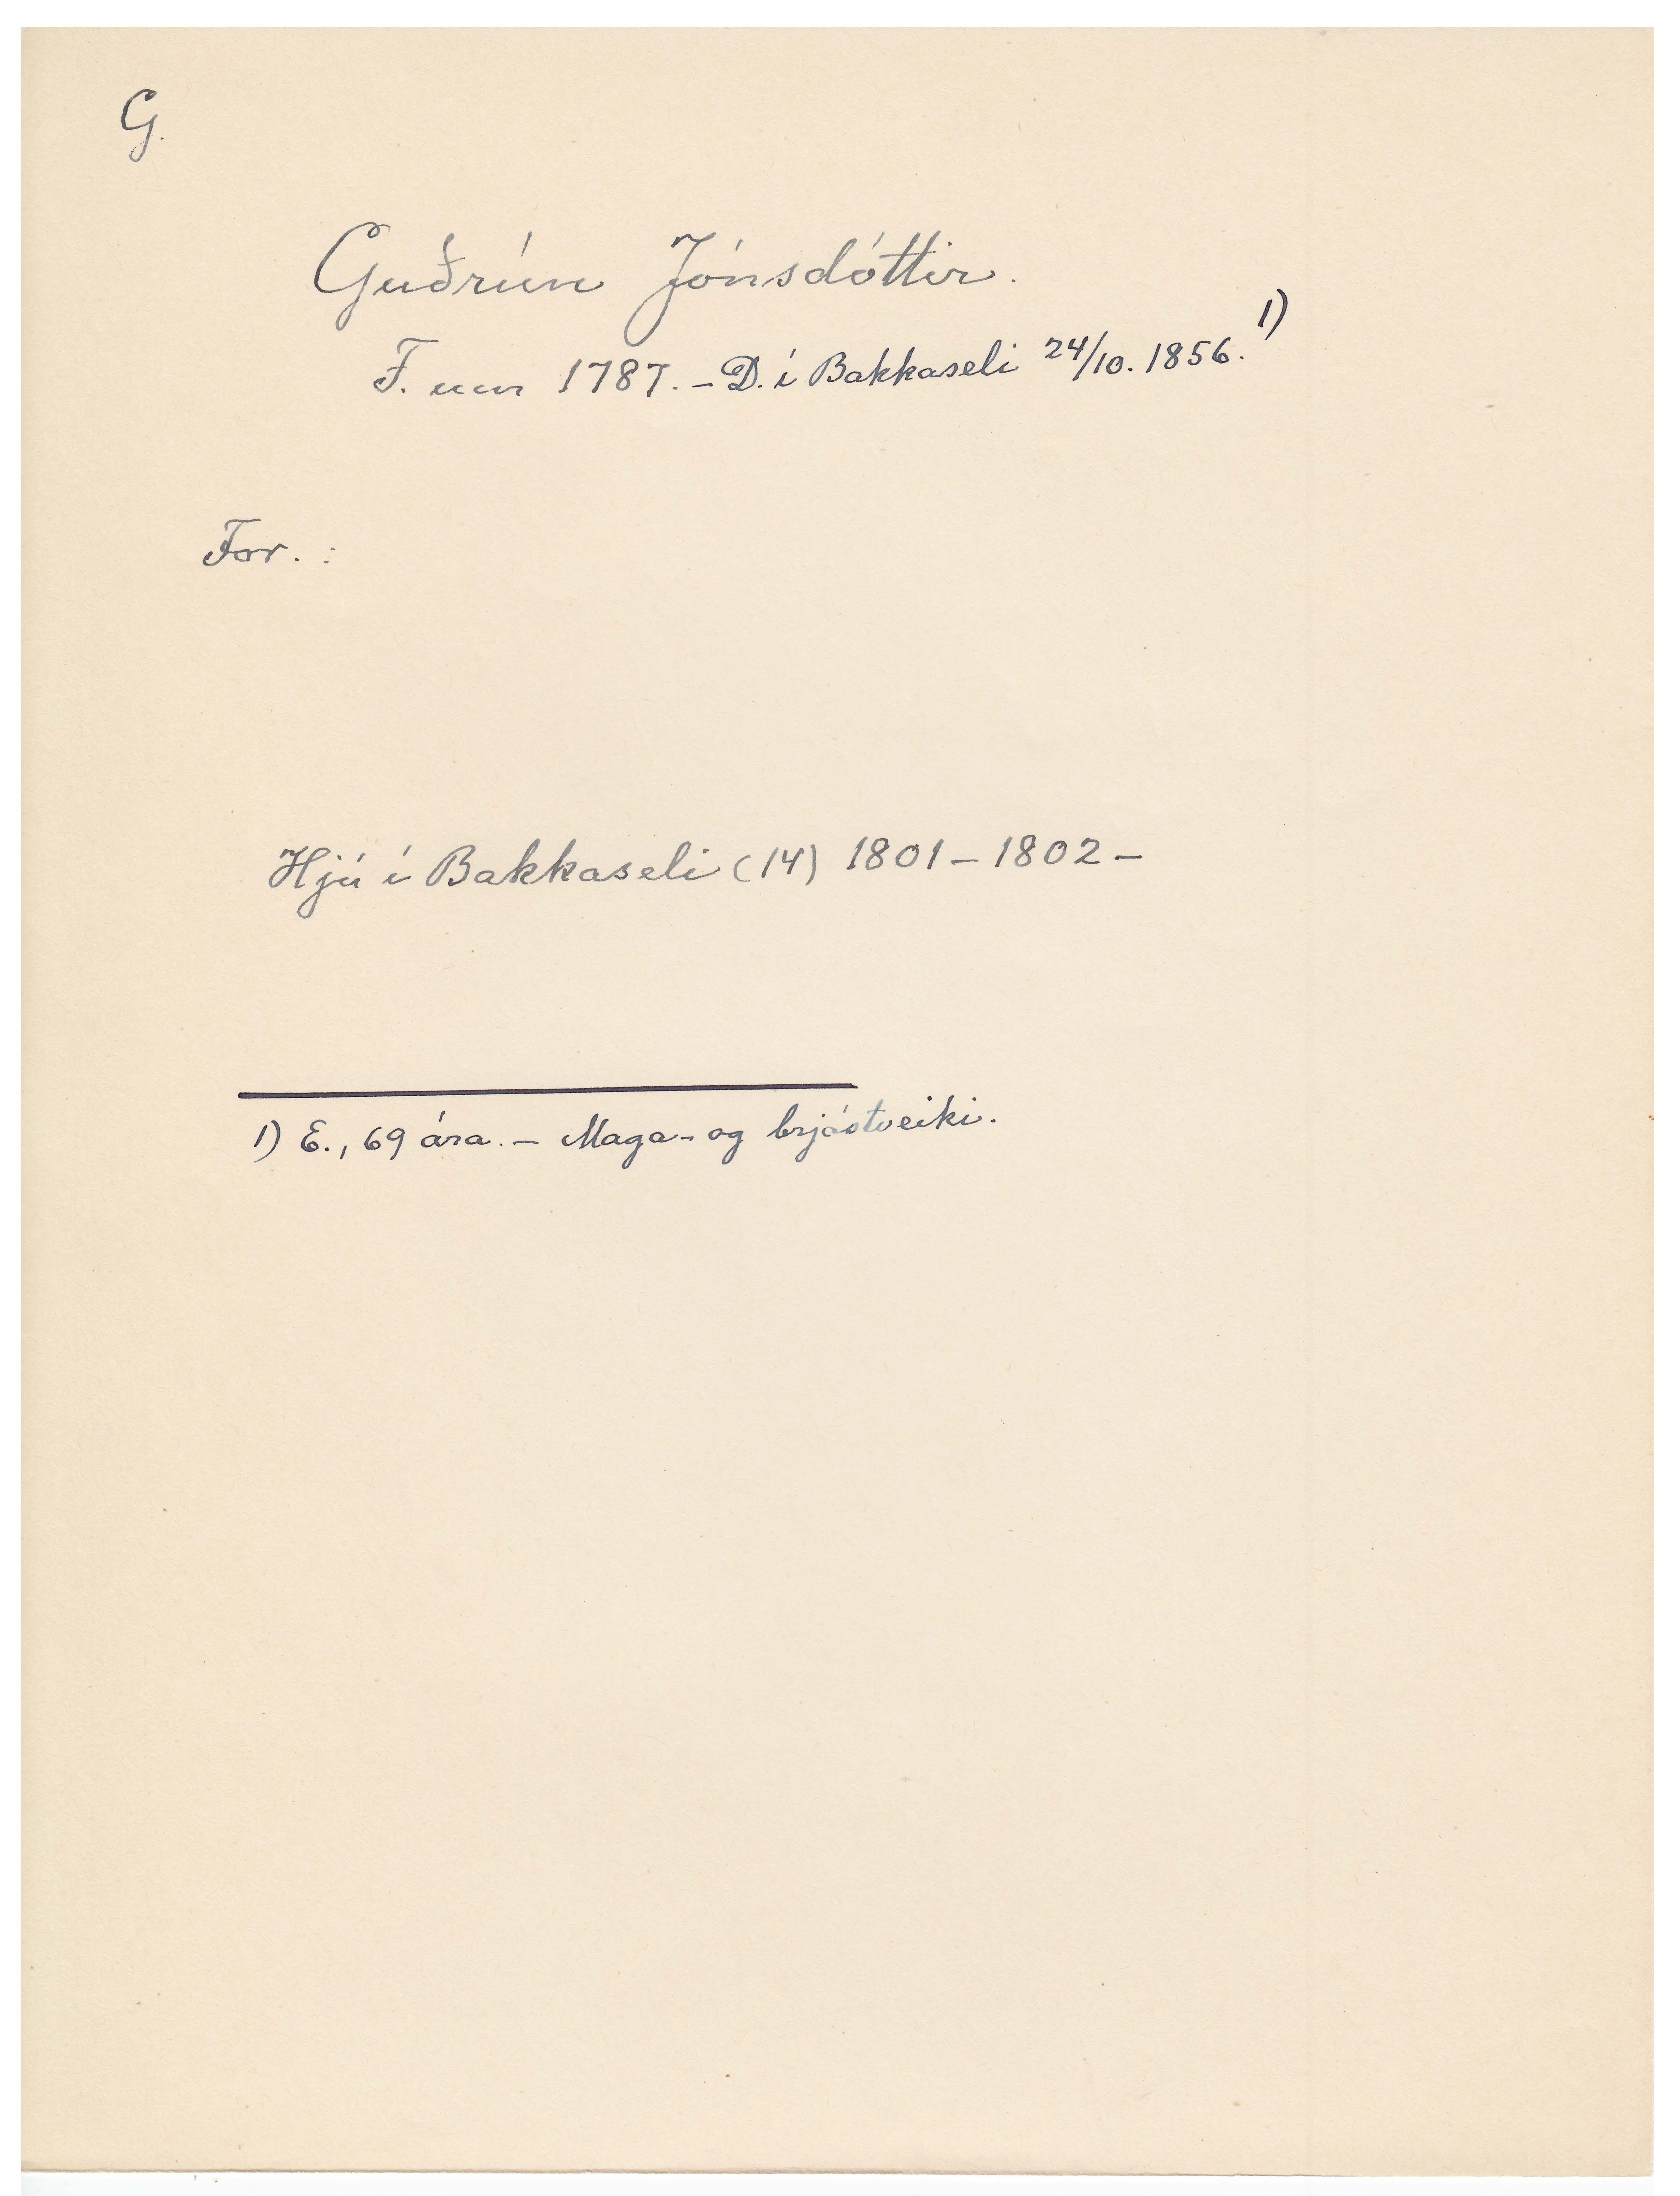 G.
Guðrún Jónsdóttir.
F. um 1787. – D. í Bakkaseli 24/10. 1856. 1)
For. :
Hjú í Bakkaseli (14) 1801 – 1802 –
1) E., 69 ára. – Maga- og brjóstveiki.